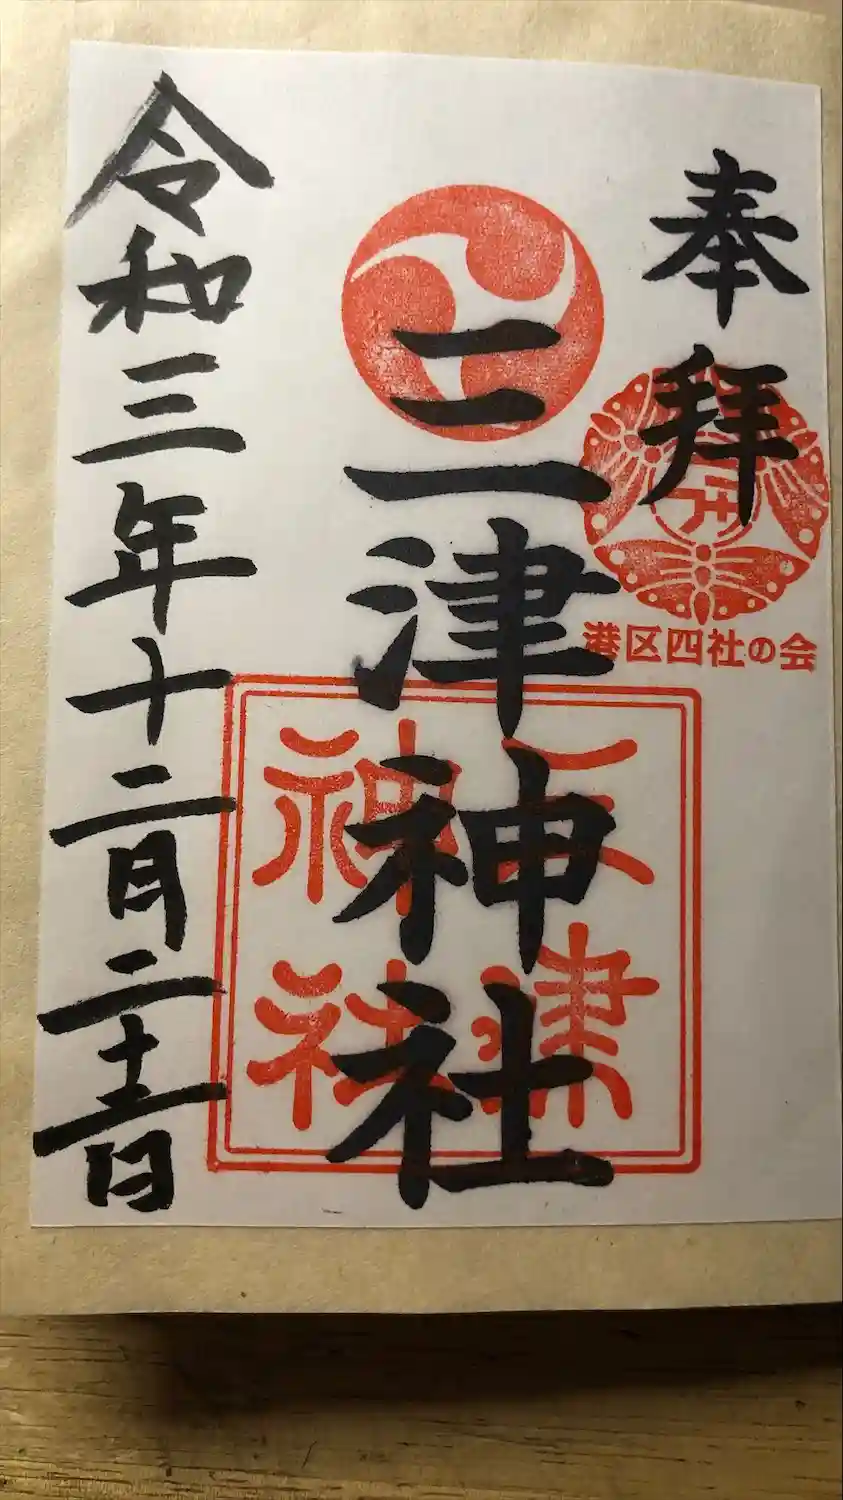 奉拝
港区四社の会
三津神社
三津
神社
令和三年十二月二十二日